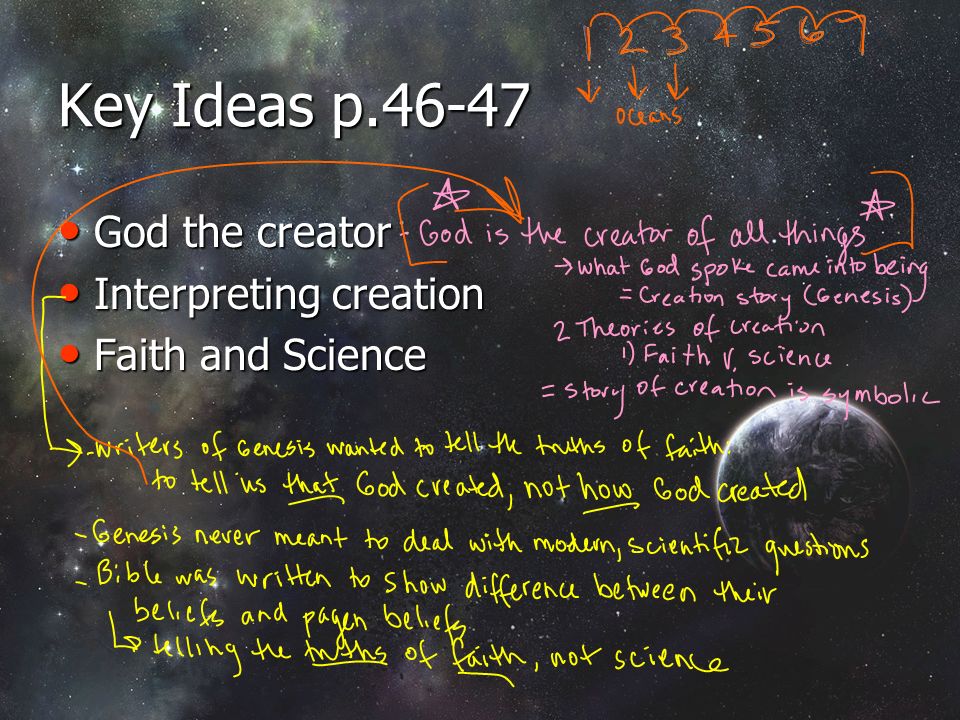 1 2 3 4 5 6 7
oceans
Key Ideas p.46-47
• God the creator - God is the creator of all things
→ what God spoke came into being
= Creation story (Genesis)
• Interpreting creation
2 Theories of creation
1) Faith v. science
• Faith and Science
= story of creation is symbolic
- writers of Genesis wanted to tell the truths of faith.
to tell us that God created, not how God created
- Genesis never meant to deal with modern, scientific questions
- Bible was written to show difference between their
beliefs and pagen beliefs
telling the truths of faith, not science